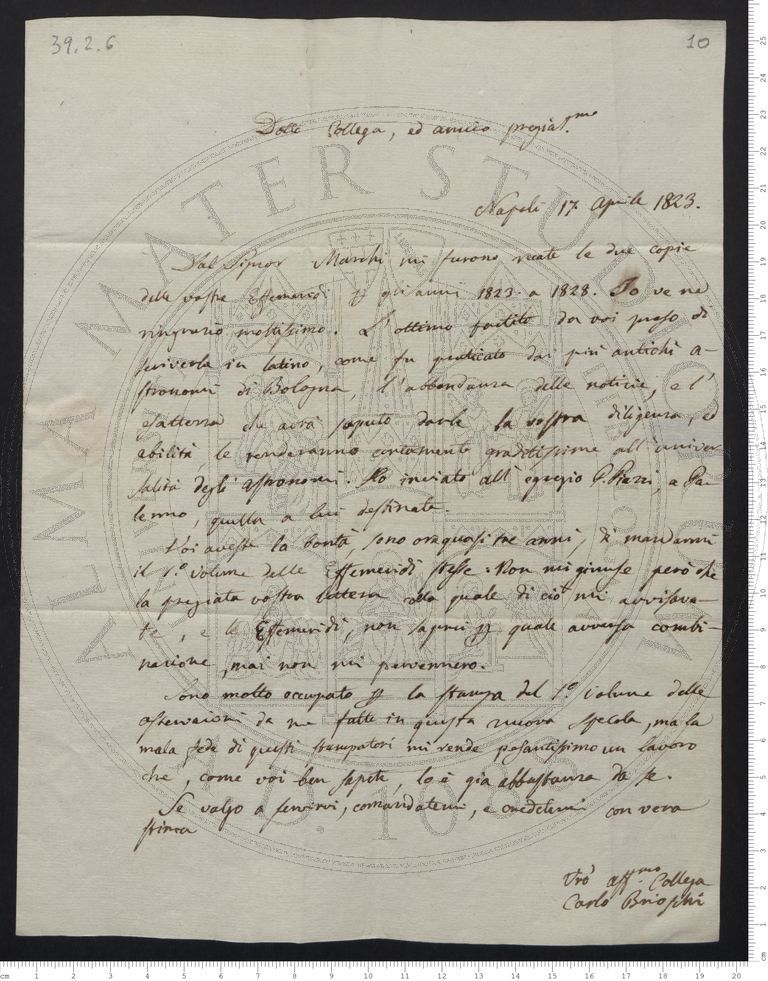 39.2.6
10
Dotto Collega, ed amico pregia.mo
Napoli 17. Aprile 1823.
Dal Signor Marchi mi furono recate le due copie
delle vostre Effemeridi pr gli anni 1823 a 1828. Io ve ne
ringrazio moltissimo. L'ottimo partito da voi preso di
scriverle in latino, come fu praticato dai più antichi a-
stronomi di Bologna, l'abbondanza delle notizie, e l'
esattezza che avrà saputo darle la vostra diligenza, ed
abilità, le renderanno certamente graditissime all'univer
salità degli Astronomi. Ho inviato all'egregio P. Piazzi, a Pa-
lermo, quella a lui destinata.
Voi aveste la bontà, sono ora quasi tre anni, di mandarmi
il 1.o volume delle Effemeridi stesse: Non mi giunse però che
la pregiata vostra lettera colla quale di ciò mi avvisava-
te, e le Effemeridi, non saprei pr quale avversa combi-
nazione, mai non mi pervennero.
Sono molto occupato pr la stampa del 1.o volume delle
osservazioni da me fatte in questa nuova specola, ma la
mala fede di questi stampatori mi rende pesantissimo un lavoro
che, come voi ben sapete, lo è già abbastanza da se.
Se valgo a servirvi, comandatemi, e credetemi con vera
stima
Vro aff.mo Collega
Carlo Brioschi
ALMA MATER STUDIORUM
A.D. 1088
cm 1 2 3 4 5 6 7 8 9 10 11 12 13 14 15 16 17 18 19 20